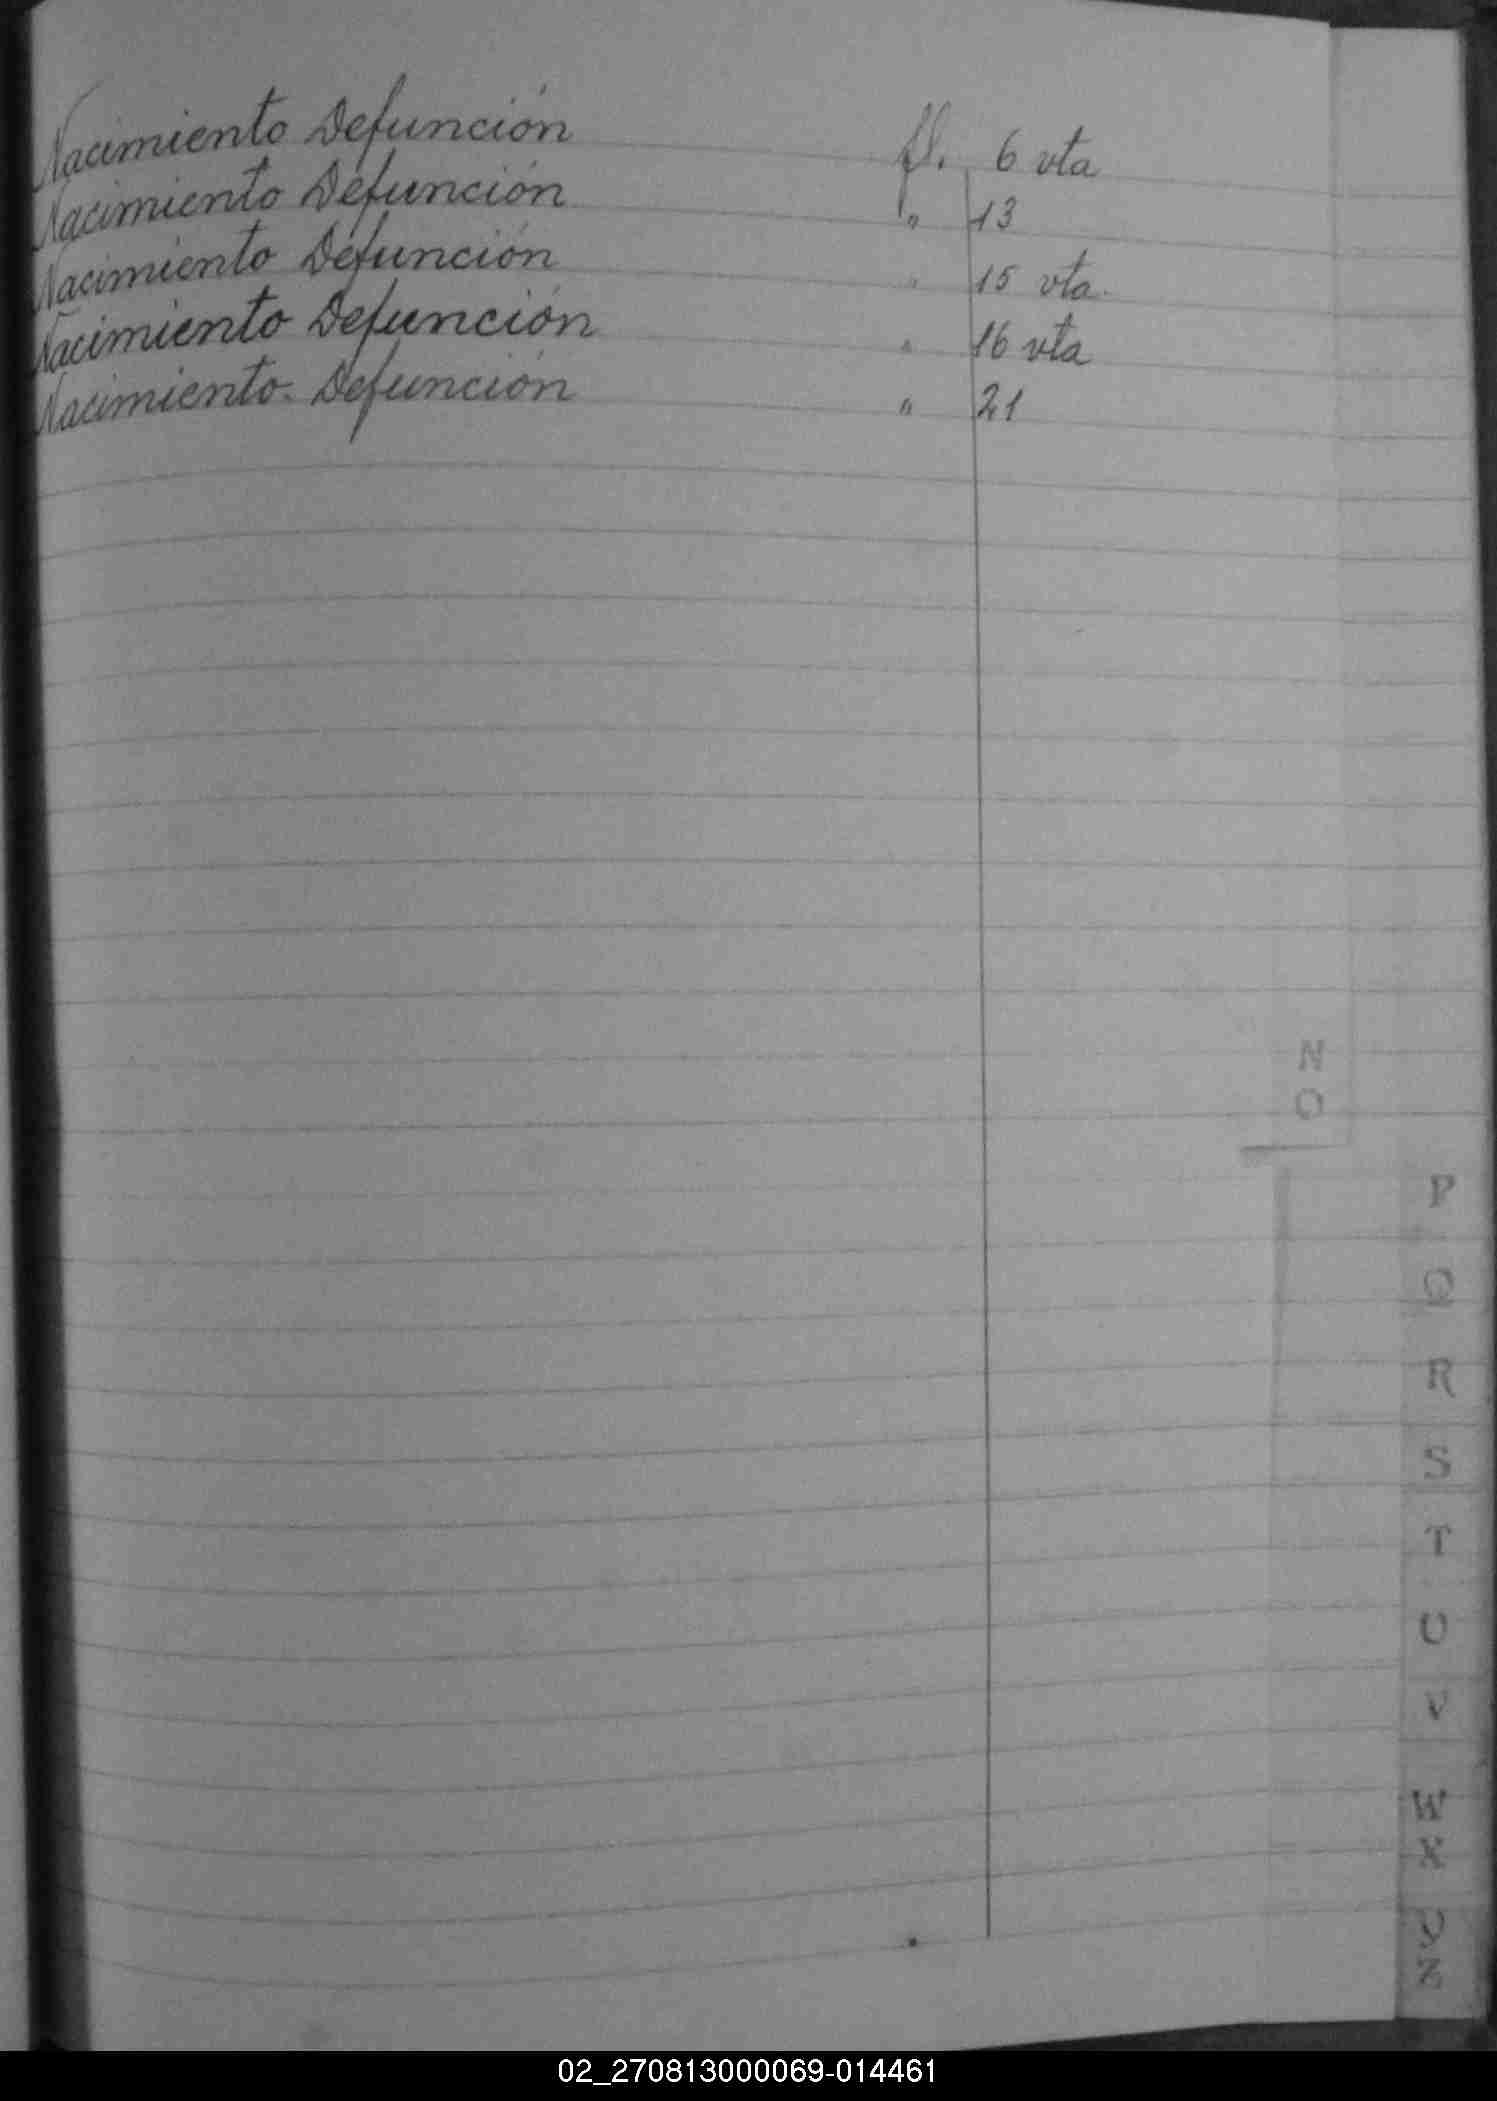 Nacimiento Defunción fl. 6 vta
Nacimiento Defunción " 13
Nacimiento Defunción " 15 vta.
Nacimiento Defunción " 16 vta
Nacimiento. Defunción " 21
N
O
P
Q
R
S
T
U
V
W
X
Y
Z
02_270813000069-014461